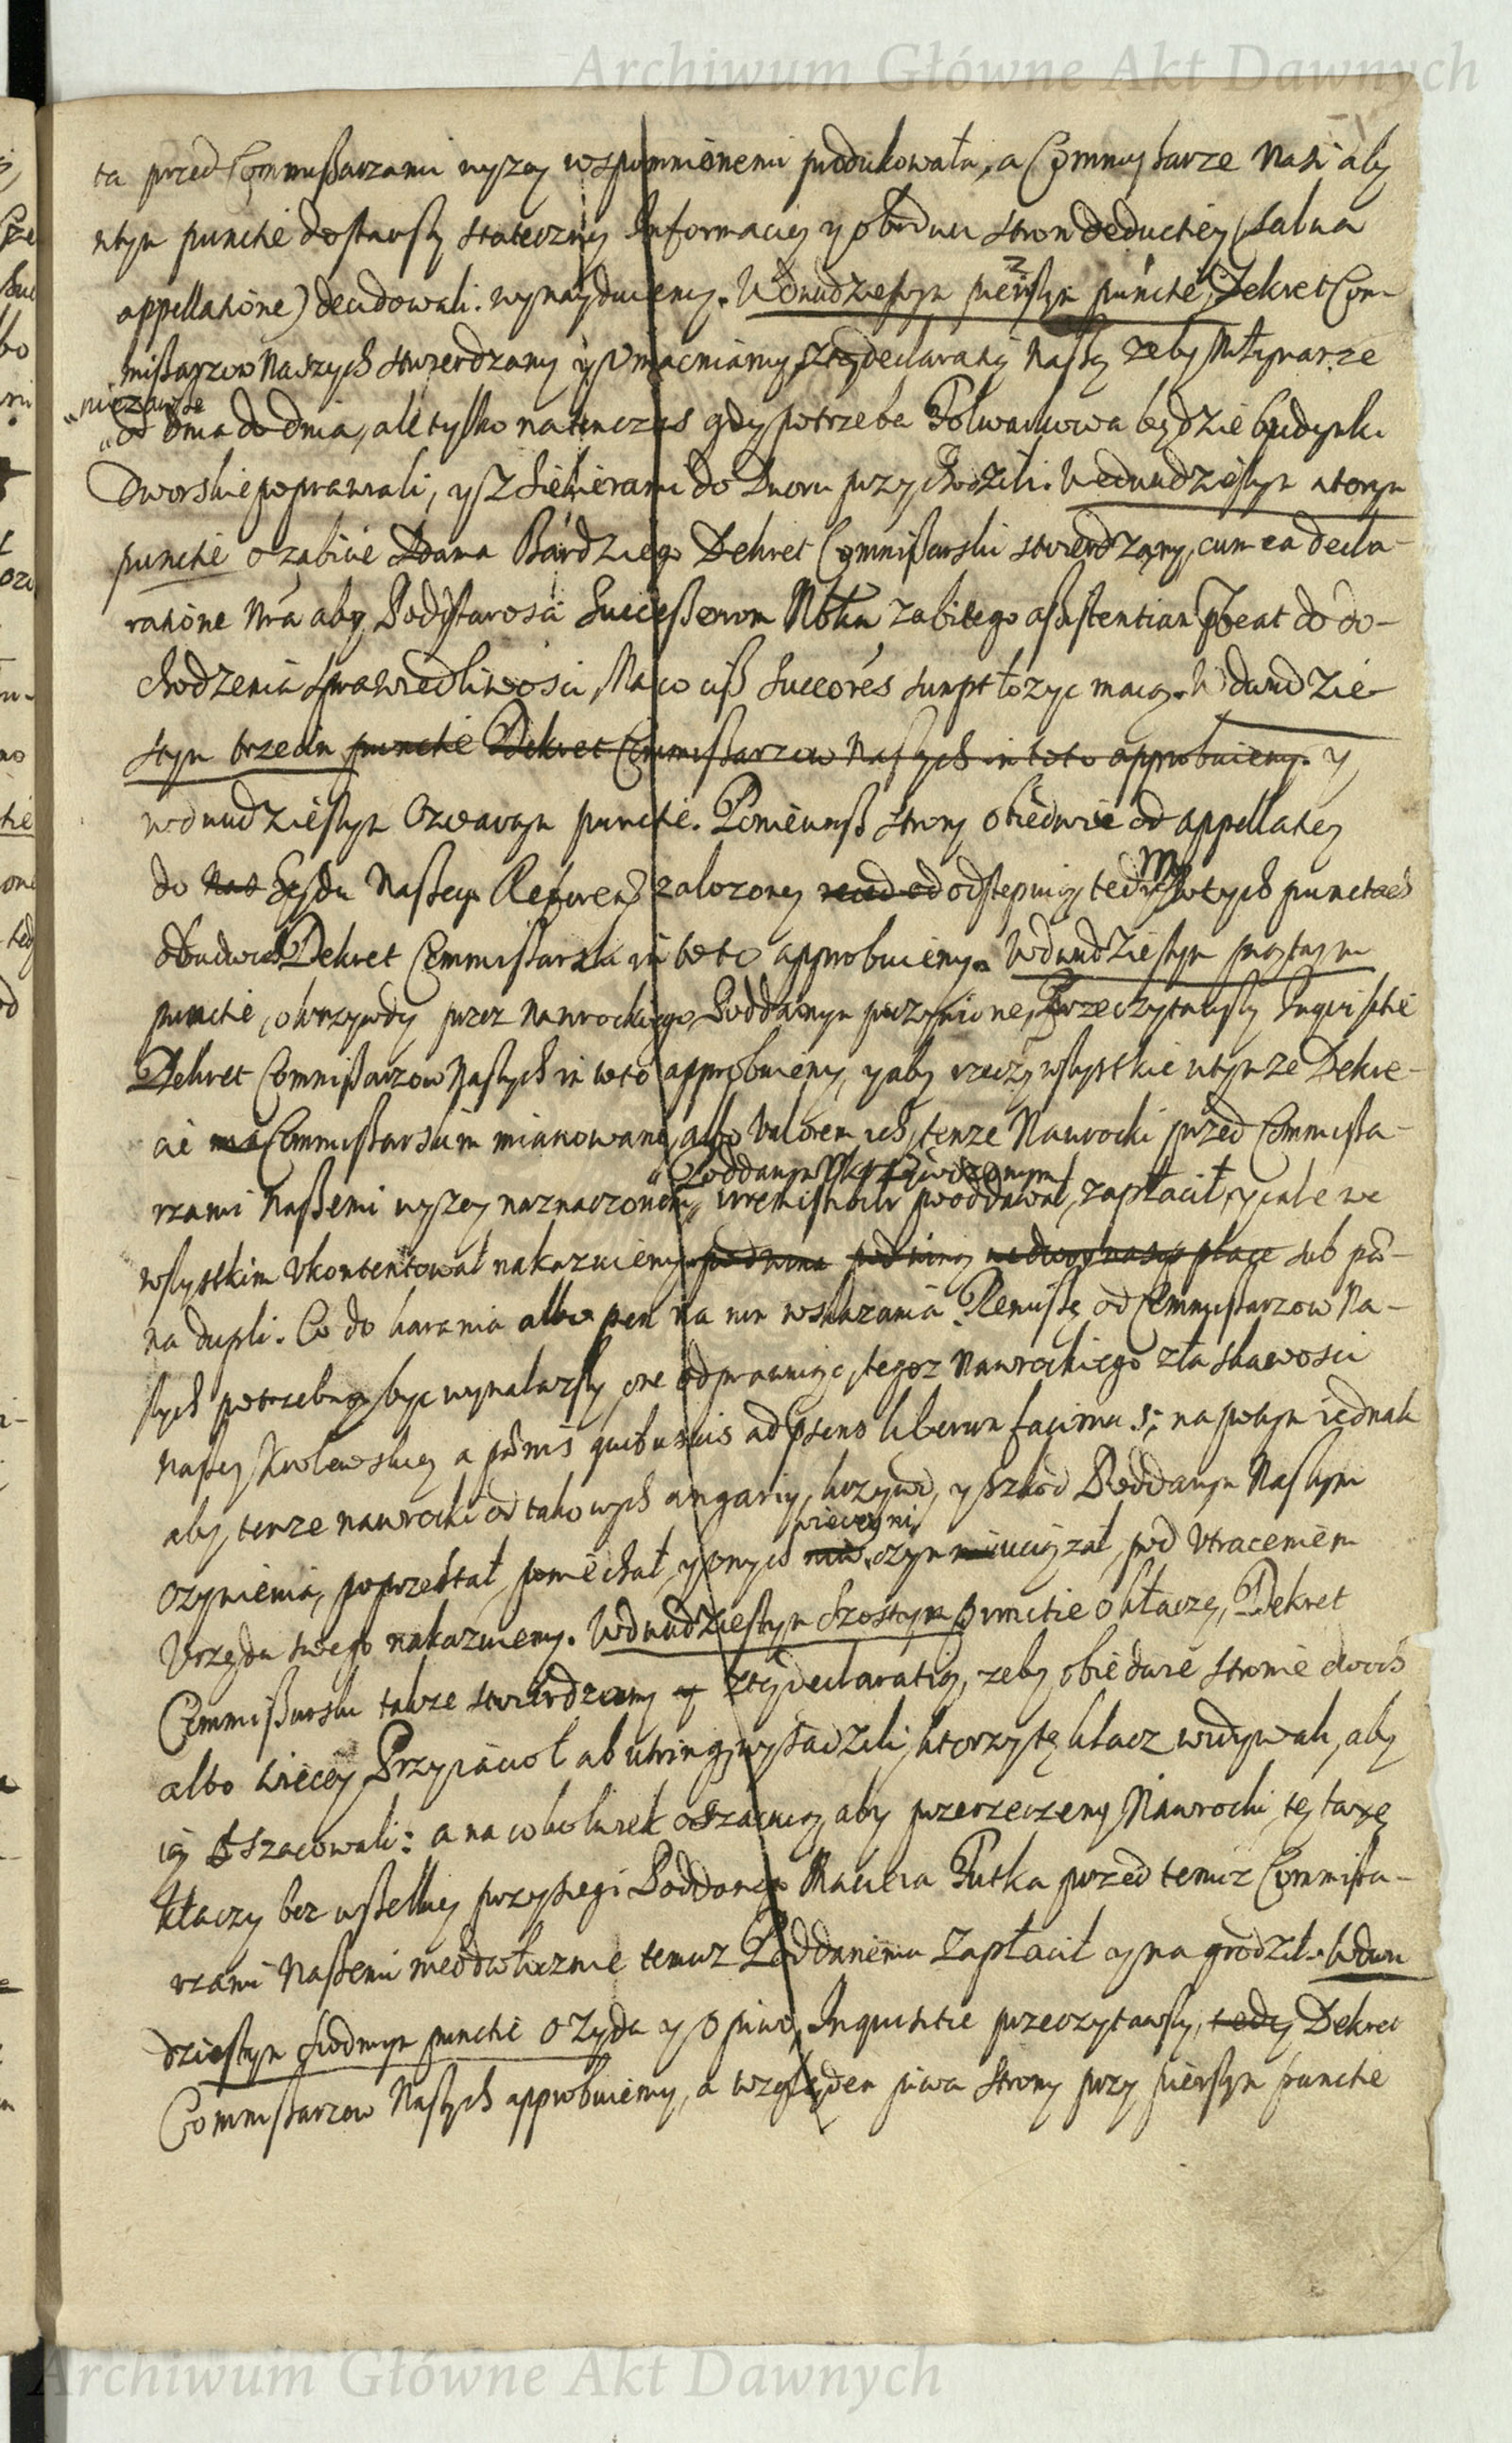 Archiwum Główne Akt Dawnych
ta przed Commißarzami wyzey wspomnionemi produkowała, a Commissarze Nasi aby
wtym punctie dostawszy stateczney Informaciey y obudwu stron deductiey (salva
appellatione) decidowali. wynayduiemy. W dwudziestym pierszym punctie, Dekret Com-
mißarzow Naszych stwierdzamy y vmacniamy, ztą declaratią naszą zeby Młynarze
niezawsze
od dnia do dnia, ale tylko natenczas gdy potrzeba Folwarkowa będzie budynki
Dworskie poprawiali, y z siekierami do Dworu przychodzili. W dwudziestym wtorym
punctie o zabicie Adama Bardziego Dekret Commißarski stwierdzamy, cum ea decla-
ratione Nra aby Podstarosci Succeßorom zabitego aßistentiam do do-
chodzenia sprawiedliwosci, Na co ciß Succores sumpt łozyc maią. W dwudzie-
stym trzecim punctie Dekret Commißarzow Naszych in toto approbuiemy. y
wdwudziestym Czwartym punctie. Poniewasz strony obiedwie od appellatiey
do Nas Sądu Naszego Referen założoney odstępuią, tedy My wtych punctach
obudwuch Dekret Commißarski in toto approbuiemy. W dwudziestym piątym
punctie, o krzywdy przez Nawrockiego Poddanym poczynione, Przeczytawszy Inquisitie
Dekret Commißarzow Naszych in toto approbuiemy, y aby rzeczy wszystkie wtymze Dekre-
cie Commißarskim mianowane, albo valorem ich, tenze Nawrocki przed Commißa-
Poddanym Ukrzywdzonym
rzami Naßemi wyzey naznaczonemi, irremisibilr pooddawał, zapłacił, y cale we
wszystkim vkontentował nakazuiemy. sub pœ-
na dupli. Co do karania albo pen na nim wskazania Remissę od Commissarzow Na-
szych potrzebną byc wynalazszy one odprawuiąc, tegoz Nawrockiego z łaskawosci
Naszey Krolewskiey a pœnis quibusuis ad psens liberum facimus; na potym iednak
aby, tenze Nawrocki od takowych angariy, krzywd, y szkod Poddanym Naszym
wiecey ni
czynienia, poprzestał, poniechał, y onych uciązał, pod vtraceniem
Vrzędu swego nakazuiemy. W dwudziestym szostym punctie o kłaczę, Dekret
Commißarski takze stwierdzamy y ztą declaratią, zeby obiedwie stronie dwoch
albo wiecey Przyiacioł ab utrinq wysadzili, ktorzy tę kłacz widywali, aby
ią oszacowali: a na co kolwiek oszacuią, aby przerzeczony Nawrocki, tę taxę
kłaczy bez wszelkiey przysięgi Poddanego Macieia Putka przed temiz Commißa-
rzami Naßemi nieodwłocznie temuz Poddanemu zapłacił y nagrodził. W dwu
dziestym siodmym punctie o Zyda y o piwo, Inquisitie przeczytawszy, tedy Dekret
Commißarzow Naszych approbuiemy, a względem piwa strony przy pierszym punctie
Archiwum Główne Akt Dawnych